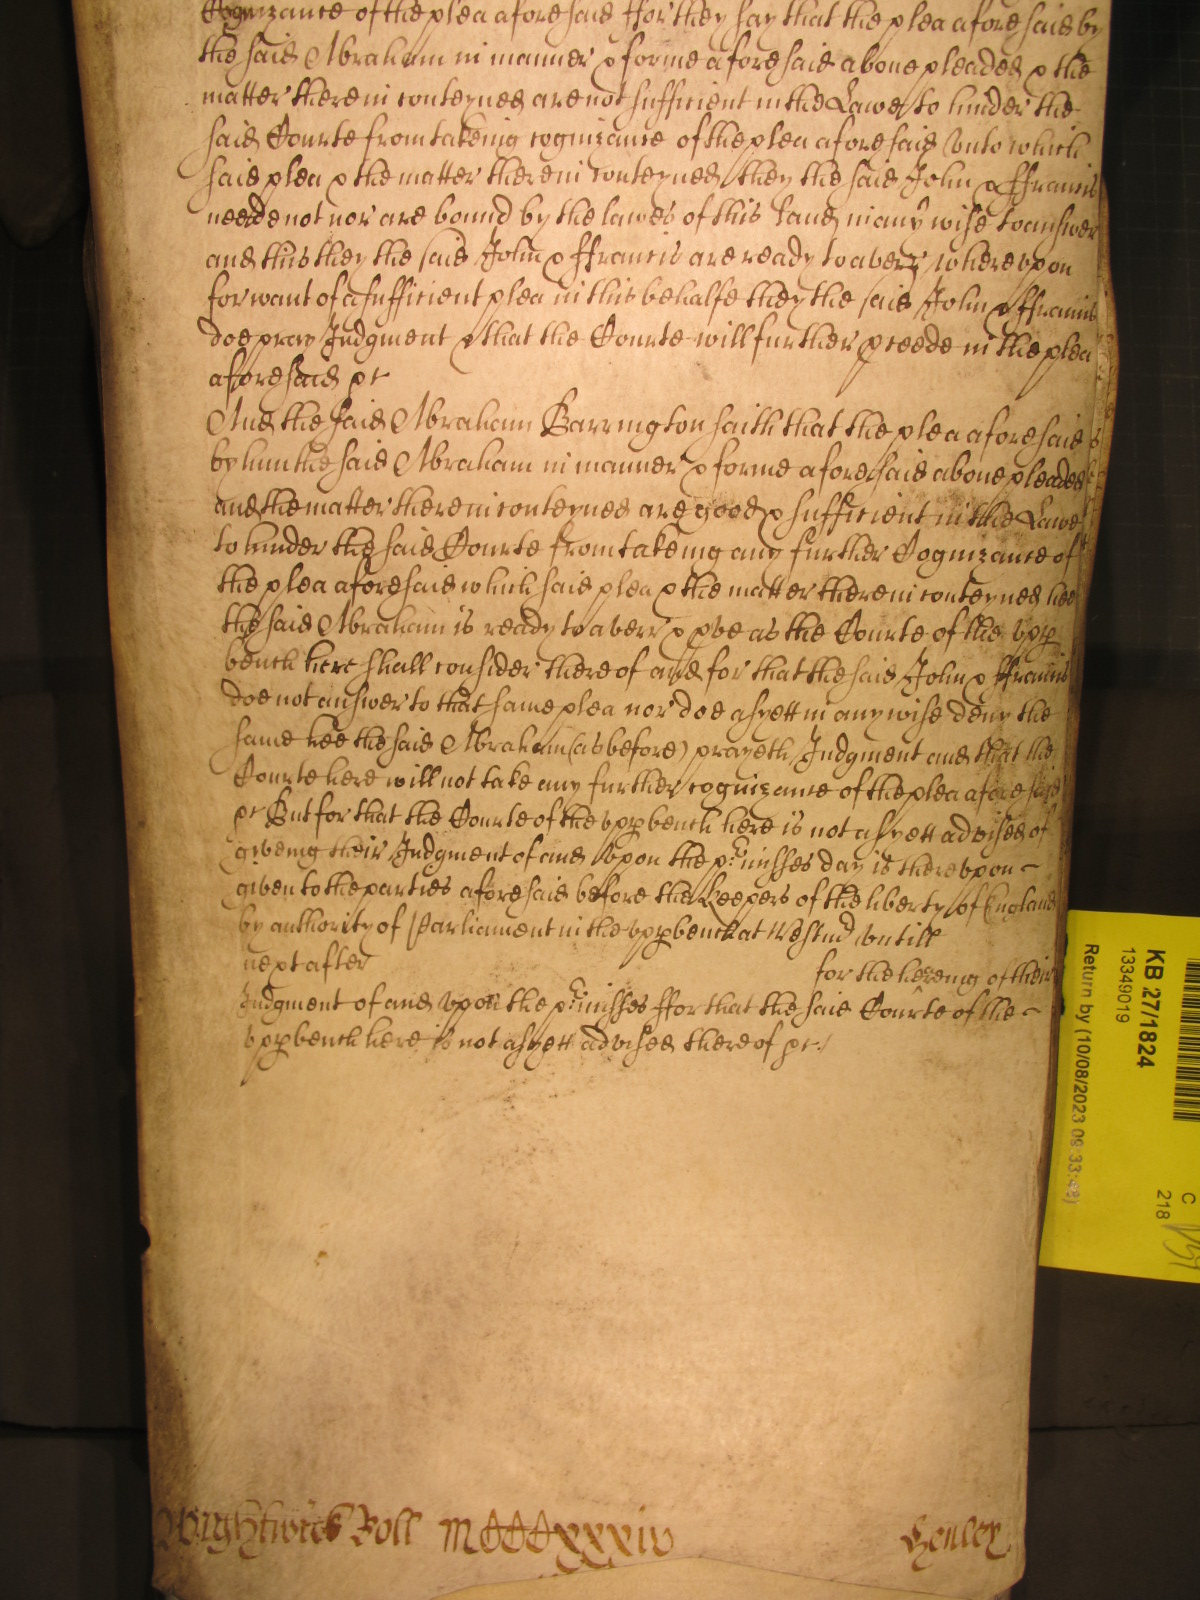 Cognizance of the plea aforesaid ffor they say that the plea aforesaid by
the said Abraham in manner & forme aforesaid above pleaded & the
matter therein conteyned are not sufficient in the Lawe to hinder the
said Courte from takeing cognizance of the plea aforesaid Unto which
said plea & the matter therein conteyned they the said John & ffrancis
neede not nor are bound by the lawes of this land in any wise to answer
and this they the said John & ffrancis are ready to averr whereupon
for want of a sufficient plea in this behalfe they the said John & ffrancis
doe pray Judgment & that the Courte will further pceede in the plea
aforesaid &c
And the said Abraham Barrington saith that the plea aforesaid
by him the said Abraham in manner & forme aforesaid above pleaded
and the matter therein conteyned are good & sufficient in the Lawe
to hinder the said Courte from takeing any further Cognizance of
the plea aforesaid which said plea & the matter therein conteyned hee
the said Abraham is ready to averr & pve as the Courte of the upp
bench here shall consider thereof and for that the said John & ffrancis
doe not answer to that same plea nor doe as yett in any wise deny the
same hee the said Abraham (as before) prayeth Judgment and that the
Courte here will not take any further cognizance of the plea aforesaid
&c But for that the Courte of the uppbench here is not as yett advised of
giveing their Judgment of and upon the pʳmisses day is thereupon
given to the parties aforesaid before the Keepers of the liberty of England
by authority of Parliament in the uppbench at Westmd untill
next after for the hereing of their
Judgment of and upon the pʳmisses ffor that the said Courte of the
uppbench here is not as yett advised thereof &c
Wightwick Roll MCCCxxxiv
Henley
KB 27/1824
13349019
Return by (10/08/2023 09:33:48)
C
218